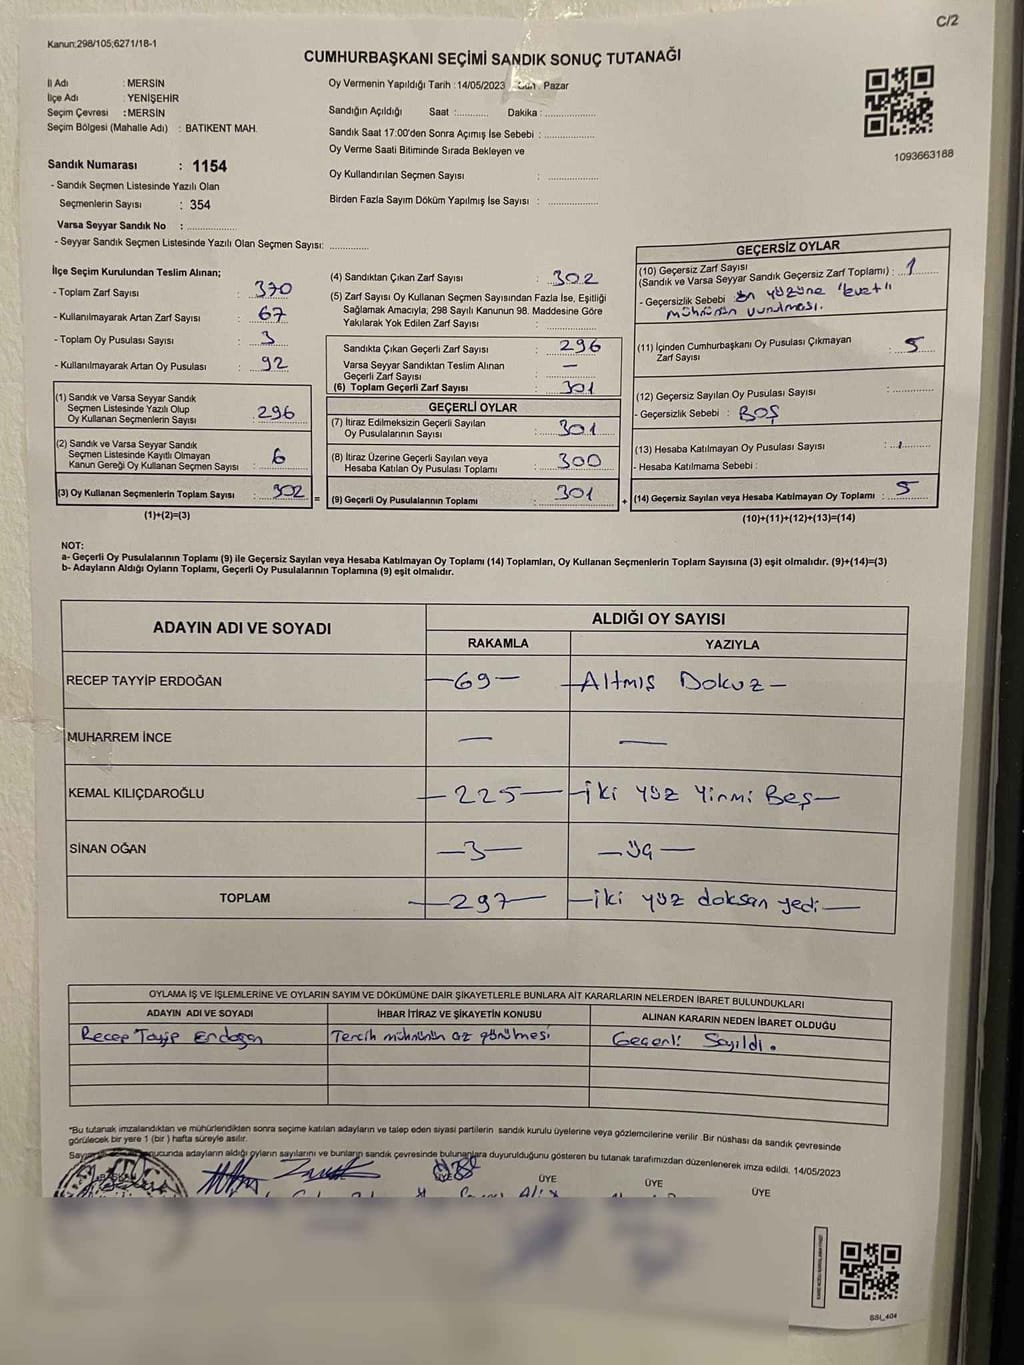 C/2
Kanun:298/105;6271/18-1
CUMHURBAŞKANI SEÇİMİ SANDIK SONUÇ TUTANAĞI
İl Adı : MERSİN
İlçe Adı : YENİŞEHİR
Seçim Çevresi : MERSİN
Seçim Bölgesi (Mahalle Adı) : BATIKENT MAH.
Oy Vermenin Yapıldığı Tarih : 14/05/2023 Gün : Pazar
Sandığın Açıldığı Saat :........... Dakika :................
Sandık Saat 17:00'den Sonra Açımış İse Sebebi :................
Oy Verme Saati Bitiminde Sırada Bekleyen ve
Oy Kullandırılan Seçmen Sayısı : ................
Birden Fazla Sayım Döküm Yapılmış İse Sayısı : ................
1093663188
Sandık Numarası : 1154
- Sandık Seçmen Listesinde Yazılı Olan
Seçmenlerin Sayısı : 354
Varsa Seyyar Sandık No : ................
- Seyyar Sandık Seçmen Listesinde Yazılı Olan Seçmen Sayısı: ............
İlçe Seçim Kurulundan Teslim Alınan;
- Toplam Zarf Sayısı : 370
- Kullanılmayarak Artan Zarf Sayısı : 67
- Toplam Oy Pusulası Sayısı : 3
- Kullanılmayarak Artan Oy Pusulası : 92
(1) Sandık ve Varsa Seyyar Sandık
Seçmen Listesinde Yazılı Olup
Oy Kullanan Seçmenlerin Sayısı : 296
(2) Sandık ve Varsa Seyyar Sandık
Seçmen Listesinde Kayıtlı Olmayan
Kanun Gereği Oy Kullanan Seçmen Sayısı : 6
(3) Oy Kullanan Seçmenlerin Toplam Sayısı : 302 =
(1)+(2)=(3)
(4) Sandıktan Çıkan Zarf Sayısı : 302
(5) Zarf Sayısı Oy Kullanan Seçmen Sayısından Fazla İse, Eşitliği
Sağlamak Amacıyla; 298 Sayılı Kanunun 98. Maddesine Göre
Yakılarak Yok Edilen Zarf Sayısı : ................
Sandıkta Çıkan Geçerli Zarf Sayısı : 296
Varsa Seyyar Sandıktan Teslim Alınan
Geçerli Zarf Sayısı : —
(6) Toplam Geçerli Zarf Sayısı : 301
GEÇERLİ OYLAR
(7) İtiraz Edilmeksizin Geçerli Sayılan
Oy Pusulalarının Sayısı : 301
(8) İtiraz Üzerine Geçerli Sayılan veya
Hesaba Katılan Oy Pusulası Toplamı : 300
(9) Geçerli Oy Pusulalarının Toplamı : 301 +
GEÇERSİZ OYLAR
(10) Geçersiz Zarf Sayısı
(Sandık ve Varsa Seyyar Sandık Geçersiz Zarf Toplamı) : 1
- Geçersizlik Sebebi : Ön yüzüne "evet"
mührünün vurulması.
(11) İçinden Cumhurbaşkanı Oy Pusulası Çıkmayan
Zarf Sayısı : 5
(12) Geçersiz Sayılan Oy Pusulası Sayısı : ................
- Geçersizlik Sebebi : BOŞ
(13) Hesaba Katılmayan Oy Pusulası Sayısı : ................
- Hesaba Katılmama Sebebi :
(14) Geçersiz Sayılan veya Hesaba Katılmayan Oy Toplamı : 5
(10)+(11)+(12)+(13)=(14)
NOT:
a- Geçerli Oy Pusulalarının Toplamı (9) ile Geçersiz Sayılan veya Hesaba Katılmayan Oy Toplamı (14) Toplamları, Oy Kullanan Seçmenlerin Toplam Sayısına (3) eşit olmalıdır. (9)+(14)=(3)
b- Adayların Aldığı Oyların Toplamı, Geçerli Oy Pusulalarının Toplamına (9) eşit olmalıdır.
ADAYIN ADI VE SOYADI ALDIĞI OY SAYISI
RAKAMLA YAZIYLA
RECEP TAYYİP ERDOĞAN —69— —Altmış Dokuz—
MUHARREM İNCE — —
KEMAL KILIÇDAROĞLU —225— —iki yüz Yirmi Beş—
SİNAN OĞAN —3— —üç—
TOPLAM —297— —iki yüz doksan yedi—
OYLAMA İŞ VE İŞLEMLERİNE VE OYLARIN SAYIM VE DÖKÜMÜNE DAİR ŞİKAYETLERLE BUNLARA AİT KARARLARIN NELERDEN İBARET BULUNDUKLARI
ADAYIN ADI VE SOYADI İHBAR İTİRAZ VE ŞİKAYETİN KONUSU ALINAN KARARIN NEDEN İBARET OLDUĞU
Recep Tayyip Erdoğan Tercih mührünün az görülmesi Geçerli Sayıldı.
*Bu tutanak imzalandıktan ve mühürlendikten sonra seçime katılan adayların ve talep eden siyasi partilerin sandık kurulu üyelerine veya gözlemcilerine verilir .Bir nüshası da sandık çevresinde
görülecek bir yere 1 (bir ) hafta süreyle asılır.
ucunda adayların aldığı oyların sayılarını ve bunların sandık çevresinde bulunanlara duyurulduğunu gösteren bu tutanak tarafımızdan düzenlenerek imza edildi. 14/05/2023
ÜYE ÜYE ÜYE
SSI_404